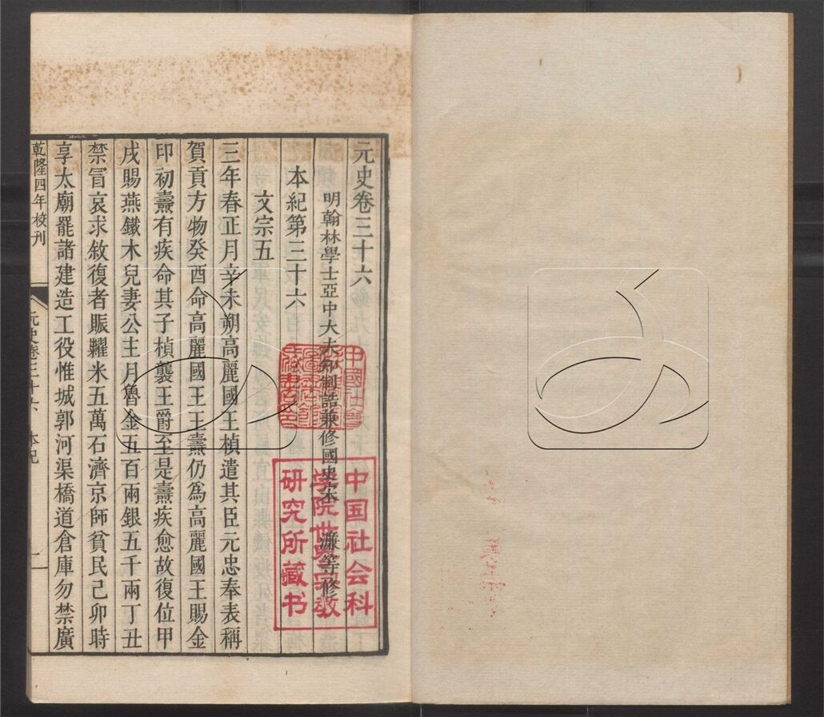 元史卷三十六
明翰林學士亞中大夫知制誥兼修國史宋 濂等修
本紀第三十六
文宗五
三年春正月辛未朔高麗國王楨遣其臣元忠奉表稱
賀貢方物癸酉命高麗國王王燾仍為高麗國王賜金
印初燾有疾命其子楨襲王爵至是燾疾愈故復位甲
戌賜燕鐵木兒妻公主月魯金五百兩銀五千兩丁丑
禁冒哀求敘復者賑糶米五萬石濟京師貧民己卯時
享太廟罷諸建造工役惟城郭河渠橋道倉庫勿禁廣
乾隆四年校刊
元史卷三十六 本紀
一
中国社会科
学院世界宗教
研究所藏书